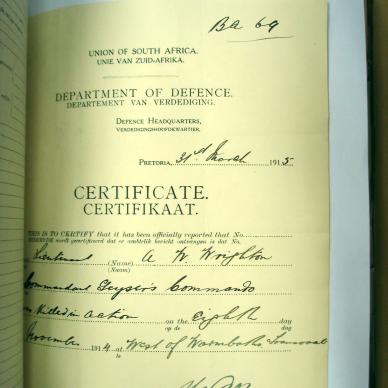 Ba 69
UNION OF SOUTH AFRICA.
UNIE VAN ZUID-AFRIKA.
DEPARTMENT OF DEFENCE.
DEPARTEMENT VAN VERDEDIGING.
DEFENCE HEADQUARTERS,
VERDEDIGINGSHOOFDKWARTIER,
PRETORIA, 31st March 1915
CERTIFICATE.
CERTIFIKAAT.
THIS IS TO CERTIFY that it has been officially reported that No.
wordt gecertifiseerd dat er ambtelik bericht ontvangen is dat No.
Lieutenant (Name) A W Wrighton
(Naam)
Commandant Geyser's Commando
Killed in action on the Eighth day
op de dag
November 1914 at West of Warmbaths Transvaal
te